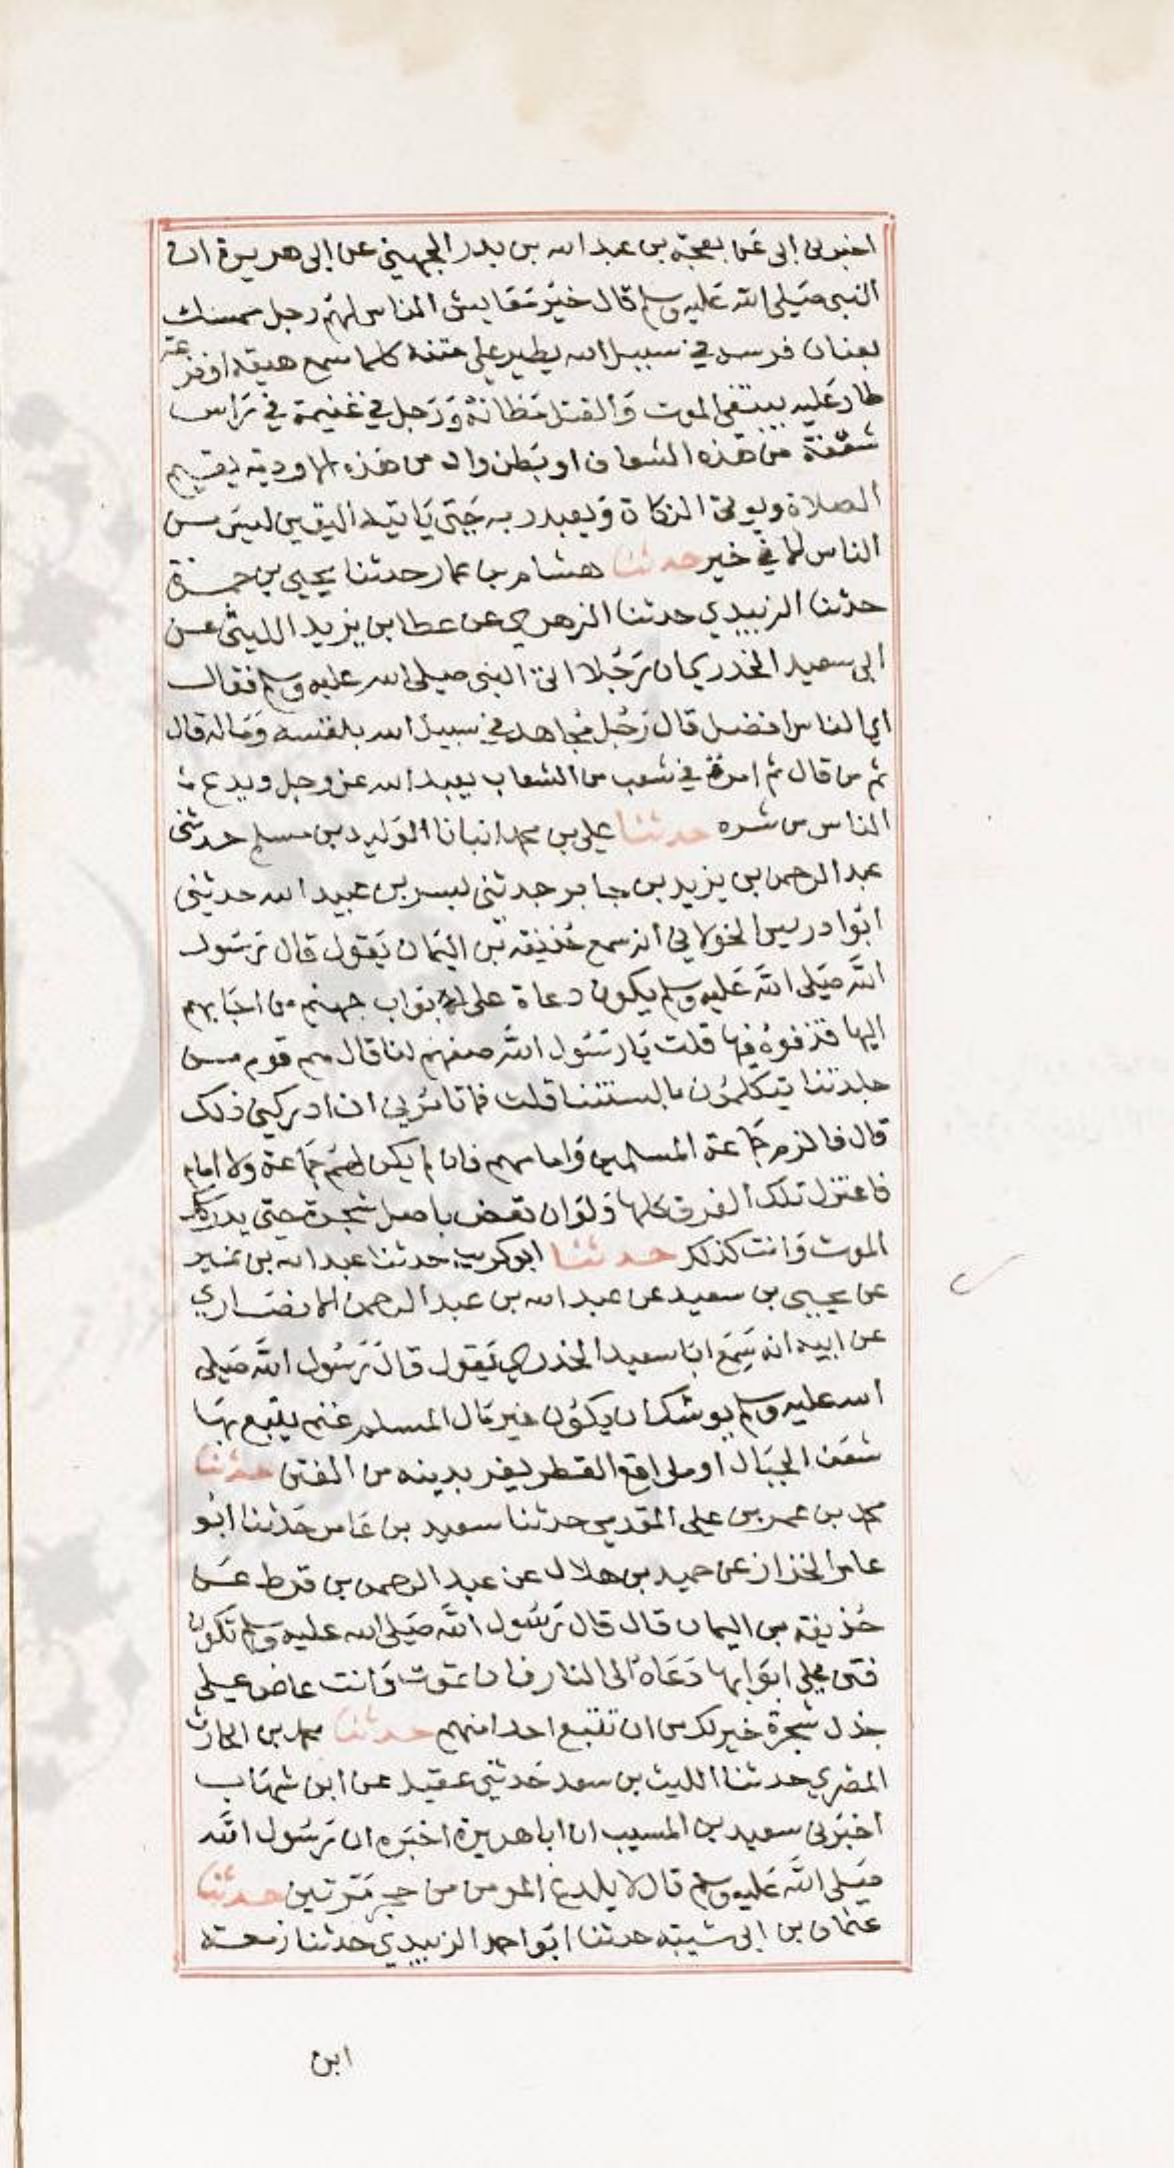 اخبرني ابى عَن بعجة بن عبد الله بن بدر الجهيني عن ابى هريرة ان
النبي صَلى الله عَليه وسلم قال خَيْر مَعَايش الناس لهم رجل ممسك
بعنان فرسه في سبيل الله يطير على متنه كلما سمع هيعة او فزعة
طار عَليه يبتغى الموت وَالقتل مَظانهُ وَرَجل في غنيمة في رَاس
شعَفة من هَذه الشعاف او بَطن واد من هَذه الاودية يقيم
الصلاة ويوتى الزكاة وَيعبد ربه حَتى يَاتيه اليقين ليسَ مِن
الناس الا في خير حدثنا هشام بن عمار حدثنا يحيى بن حمزة
حدثنا الزبيدي حدثنا الزهري عن عطا بن يزيد الليثى عن
ابى سعيد الخدري ان رَجُلا اتى النبى صلى الله عليه وسلم فقال
اي الناس افضل قال رَجُل مُجاهد في سبيل الله بنفسه وَمَاله قال
ثم من قال ثم امرؤ في شعب من الشعاب يعبد الله عز وجل ويدع
الناس من شره حدثنا على بن محمد انبانا الوَليد بن مسلم حدثنى
عبد الرحمن بن يزيد بن جابر حدثني بسر بن عبيد الله حدثيني
ابوا دريس الخولاني انه سمع حُذيفه بن اليمَان يَقول قال رَسول
الله صَلى الله عَليه وسلم يكون دعاة على ابوَاب جهنم من اجَابهم
اليها قذفوهُ فيها قلت يَا رسَوُل الله صفهم لنا قال هم قوم من
جلدتنا يتكلمُون بالسنتنا قلت فما تامُرني ان ادركني ذلك
قال فالزم جَماعة المسلمين وَامامهم فان لم يكن لهُم جَماعة ولا امام
فاعتزل تلك الفرق كلها وَلوَان تعَض باصل شجرة حتى يدركك
الموت وَانت كذلك حدثنا ابو كريب حدثنا عبد الله بن نمير
عن يحيى بن سعيد عن عبد الله بن عبد الرحمن الانصَاري
عن ابيه انه سَمِعَ ابَا سعيد الخدري يَقول قالَ رَسُول الله صَلى
الله عليه وسلم يوشك ان يكوُن خير مَال المسلم غنم يتبع بهَا
شعَف الجبَال او مواقع القطر يفر بدينه من الفتن حدثنا
محمد بن عمر بن على المقدمي حدثنا سعيد بن عَامر حَدثنا ابُو
عامر الخزاز عن حميد بن هلال عن عبد الرحمن بن قرط عَن
حُذيفة بن اليمان قال قال رَسُول الله صَلى الله عليه وسلم تكون
فتن على ابوَابها دَعَاة الى النار فان تموت وَانت عاض على
جذل شجَرة خير لك من ان تتبع احدا منهم حدثنا محمد بن الحارث
المصَري حدثنا الليث بن سعد حَدثني عقيل عن ابن شهَاب
اخبَرنى سعيد بن المسيب ان ابا هريرة اخبَره ان رَسُول الله
صَلى الله عَليه وسلم قال لا يلدغ المومن من حجر مَرتين حدثنا
عثمان بن ابى شيبه حدثنا ابَوا حمد الزبيدي حدثنا زمعة
ابن